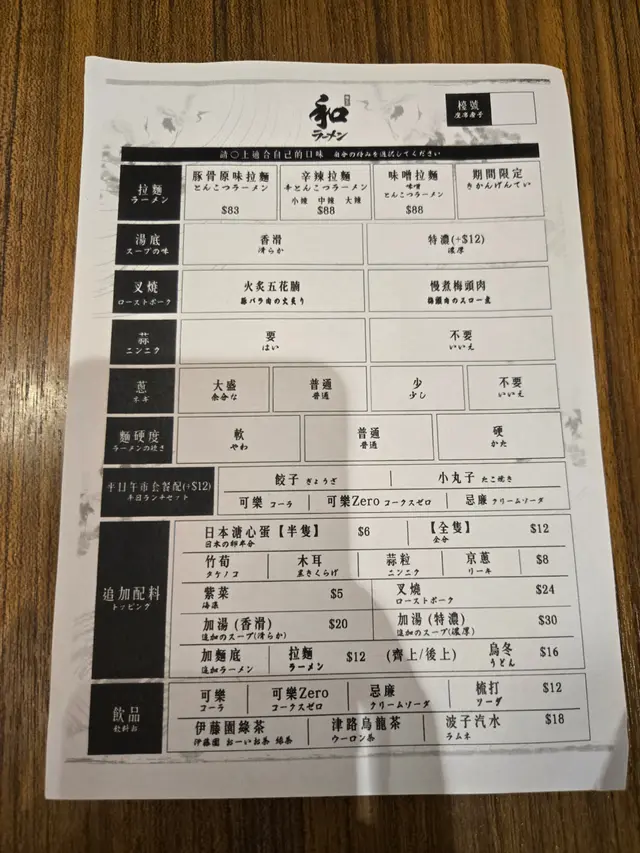 和
ラーメン
檯號
座席番号
請○上適合自己的口味 自分の好みを選択してください
拉麵
ラーメン
豚骨原味拉麵
とんこつラーメン
$83
辛辣拉麵
辛とんこつラーメン
小辣 中辣 大辣
$88
味噌拉麵
味噌
とんこつラーメン
$88
期間限定
きかんげんてい
湯底
スープの味
香滑
清らか
特濃(+$12)
濃厚
叉燒
ローストポーク
火炙五花腩
豚バラ肉の火炙り
慢煮梅頭肉
梅頭肉のスロー煮
蒜
ニンニク
要
はい
不要
いいえ
蔥
ネギ
大盛
余分な
普通
普通
少
少し
不要
いいえ
麵硬度
ラーメンの硬さ
軟
やわ
普通
普通
硬
かた
平日午市套餐配(+$12)
平日ランチセット
餃子 ぎょうざ
小丸子 たこ焼き
可樂 コーラ
可樂Zero コークスゼロ
忌廉 クリームソーダ
追加配料
トッピング
日本溏心蛋【半隻】 $6
日本の卵半分
【全隻】 $12
全分
竹荀
タケノコ
木耳
黒きくらげ
蒜粒
ニンニク
京蔥 $8
リーキ
紫菜 $5
海藻
叉燒 $24
ローストポーク
加湯 (香滑) $20
追加のスープ(清らか)
加湯 (特濃) $30
追加のスープ(濃厚)
加麵底
追加ラーメン
拉麵 $12 (齊上/後上)
ラーメン
烏冬 $16
うどん
飲品
飲料お
可樂
コーラ
可樂Zero
コークスゼロ
忌廉
クリームソーダ
梳打 $12
ソーダ
伊藤園綠茶
伊藤園 おーいお茶 綠茶
津路烏龍茶
ウーロン茶
波子汽水 $18
ラムネ